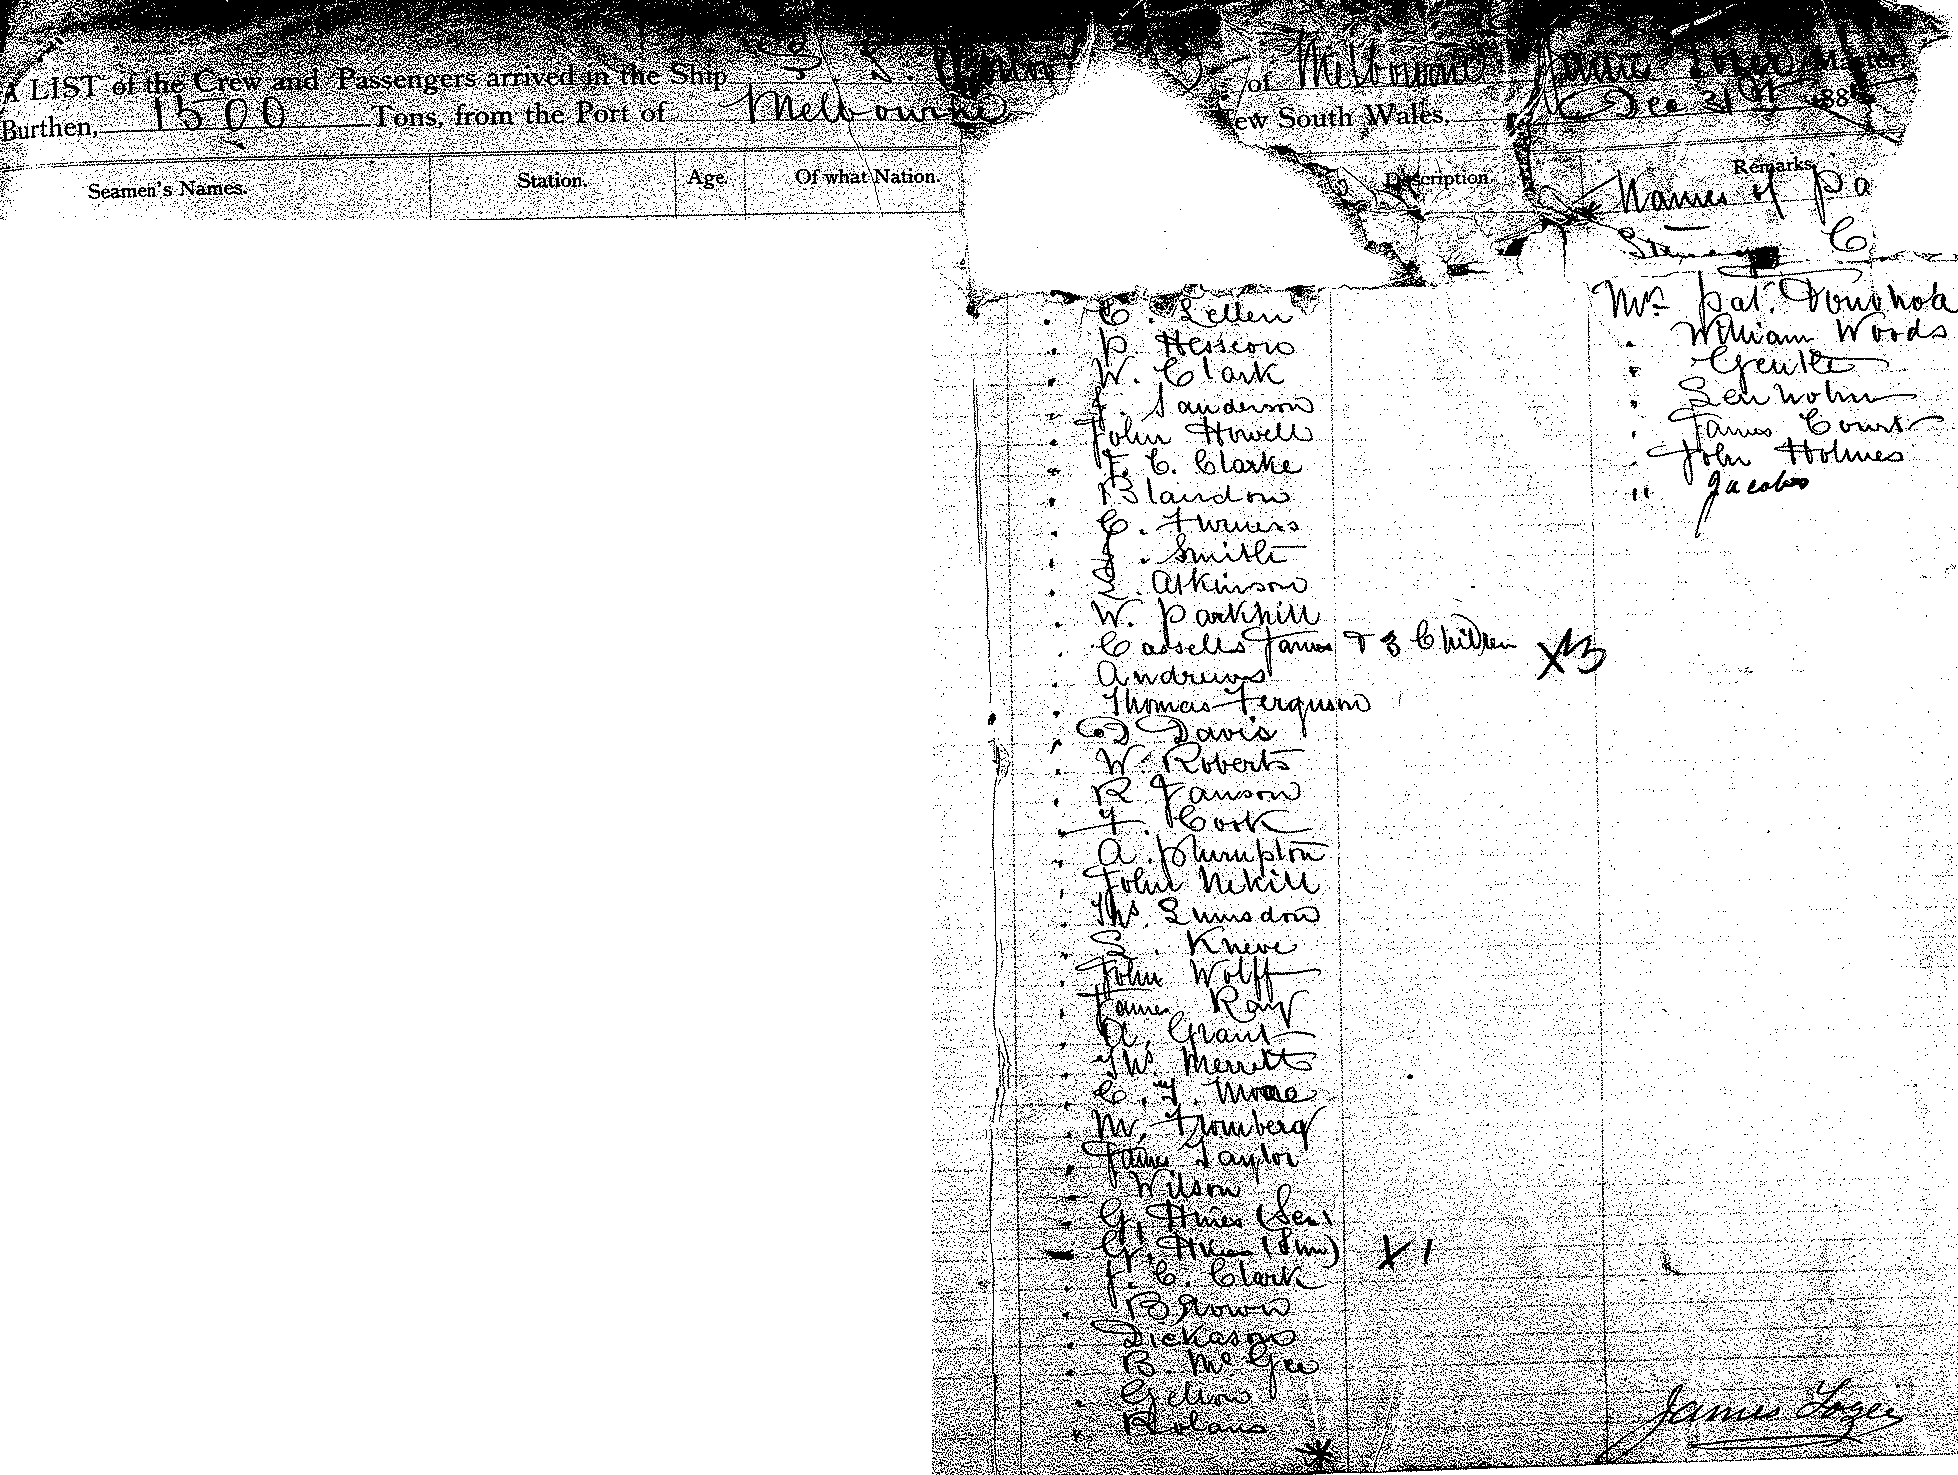 A LIST of the Crew and Passengers arrived in the Ship S. S. of Melbourne James Master
Burthen, 1500 Tons, from the Port of Melbourne New South Wales, Dec 31st 188
Seamen's Names. Station. Age. Of what Nation. Description. Remarks
Names of Pa
C. Lellen
P. Hesseon
W. Clark
Sanderson
John Howell
F. C. Clarke
Blandow
C. Turners
Smith
Atkinson
W. Parkhill
Cassells James & 3 Children X3
Andrews
Thomas Ferguson
D Davis
W. Roberts
R Janson
Cook
A. Plumpton
John Nekill
Ths. Lumsdon
S. Kneve
John Wolff
James Ray
A. Grant
Ths. Merrett
C. F. Moore
M. Fromberg
James Taylor
Wilson
G. Hines (Sen)
G. Hines (Jun) X 1
J. C. Clark
Brown
Dickason
B. McGee
Gellon
Rolans
Mr. Pat. Donohoe
" William Woods
" Gentle
" Lenholm
" James Court
" John Holmes
" Jacobs
James Lozee